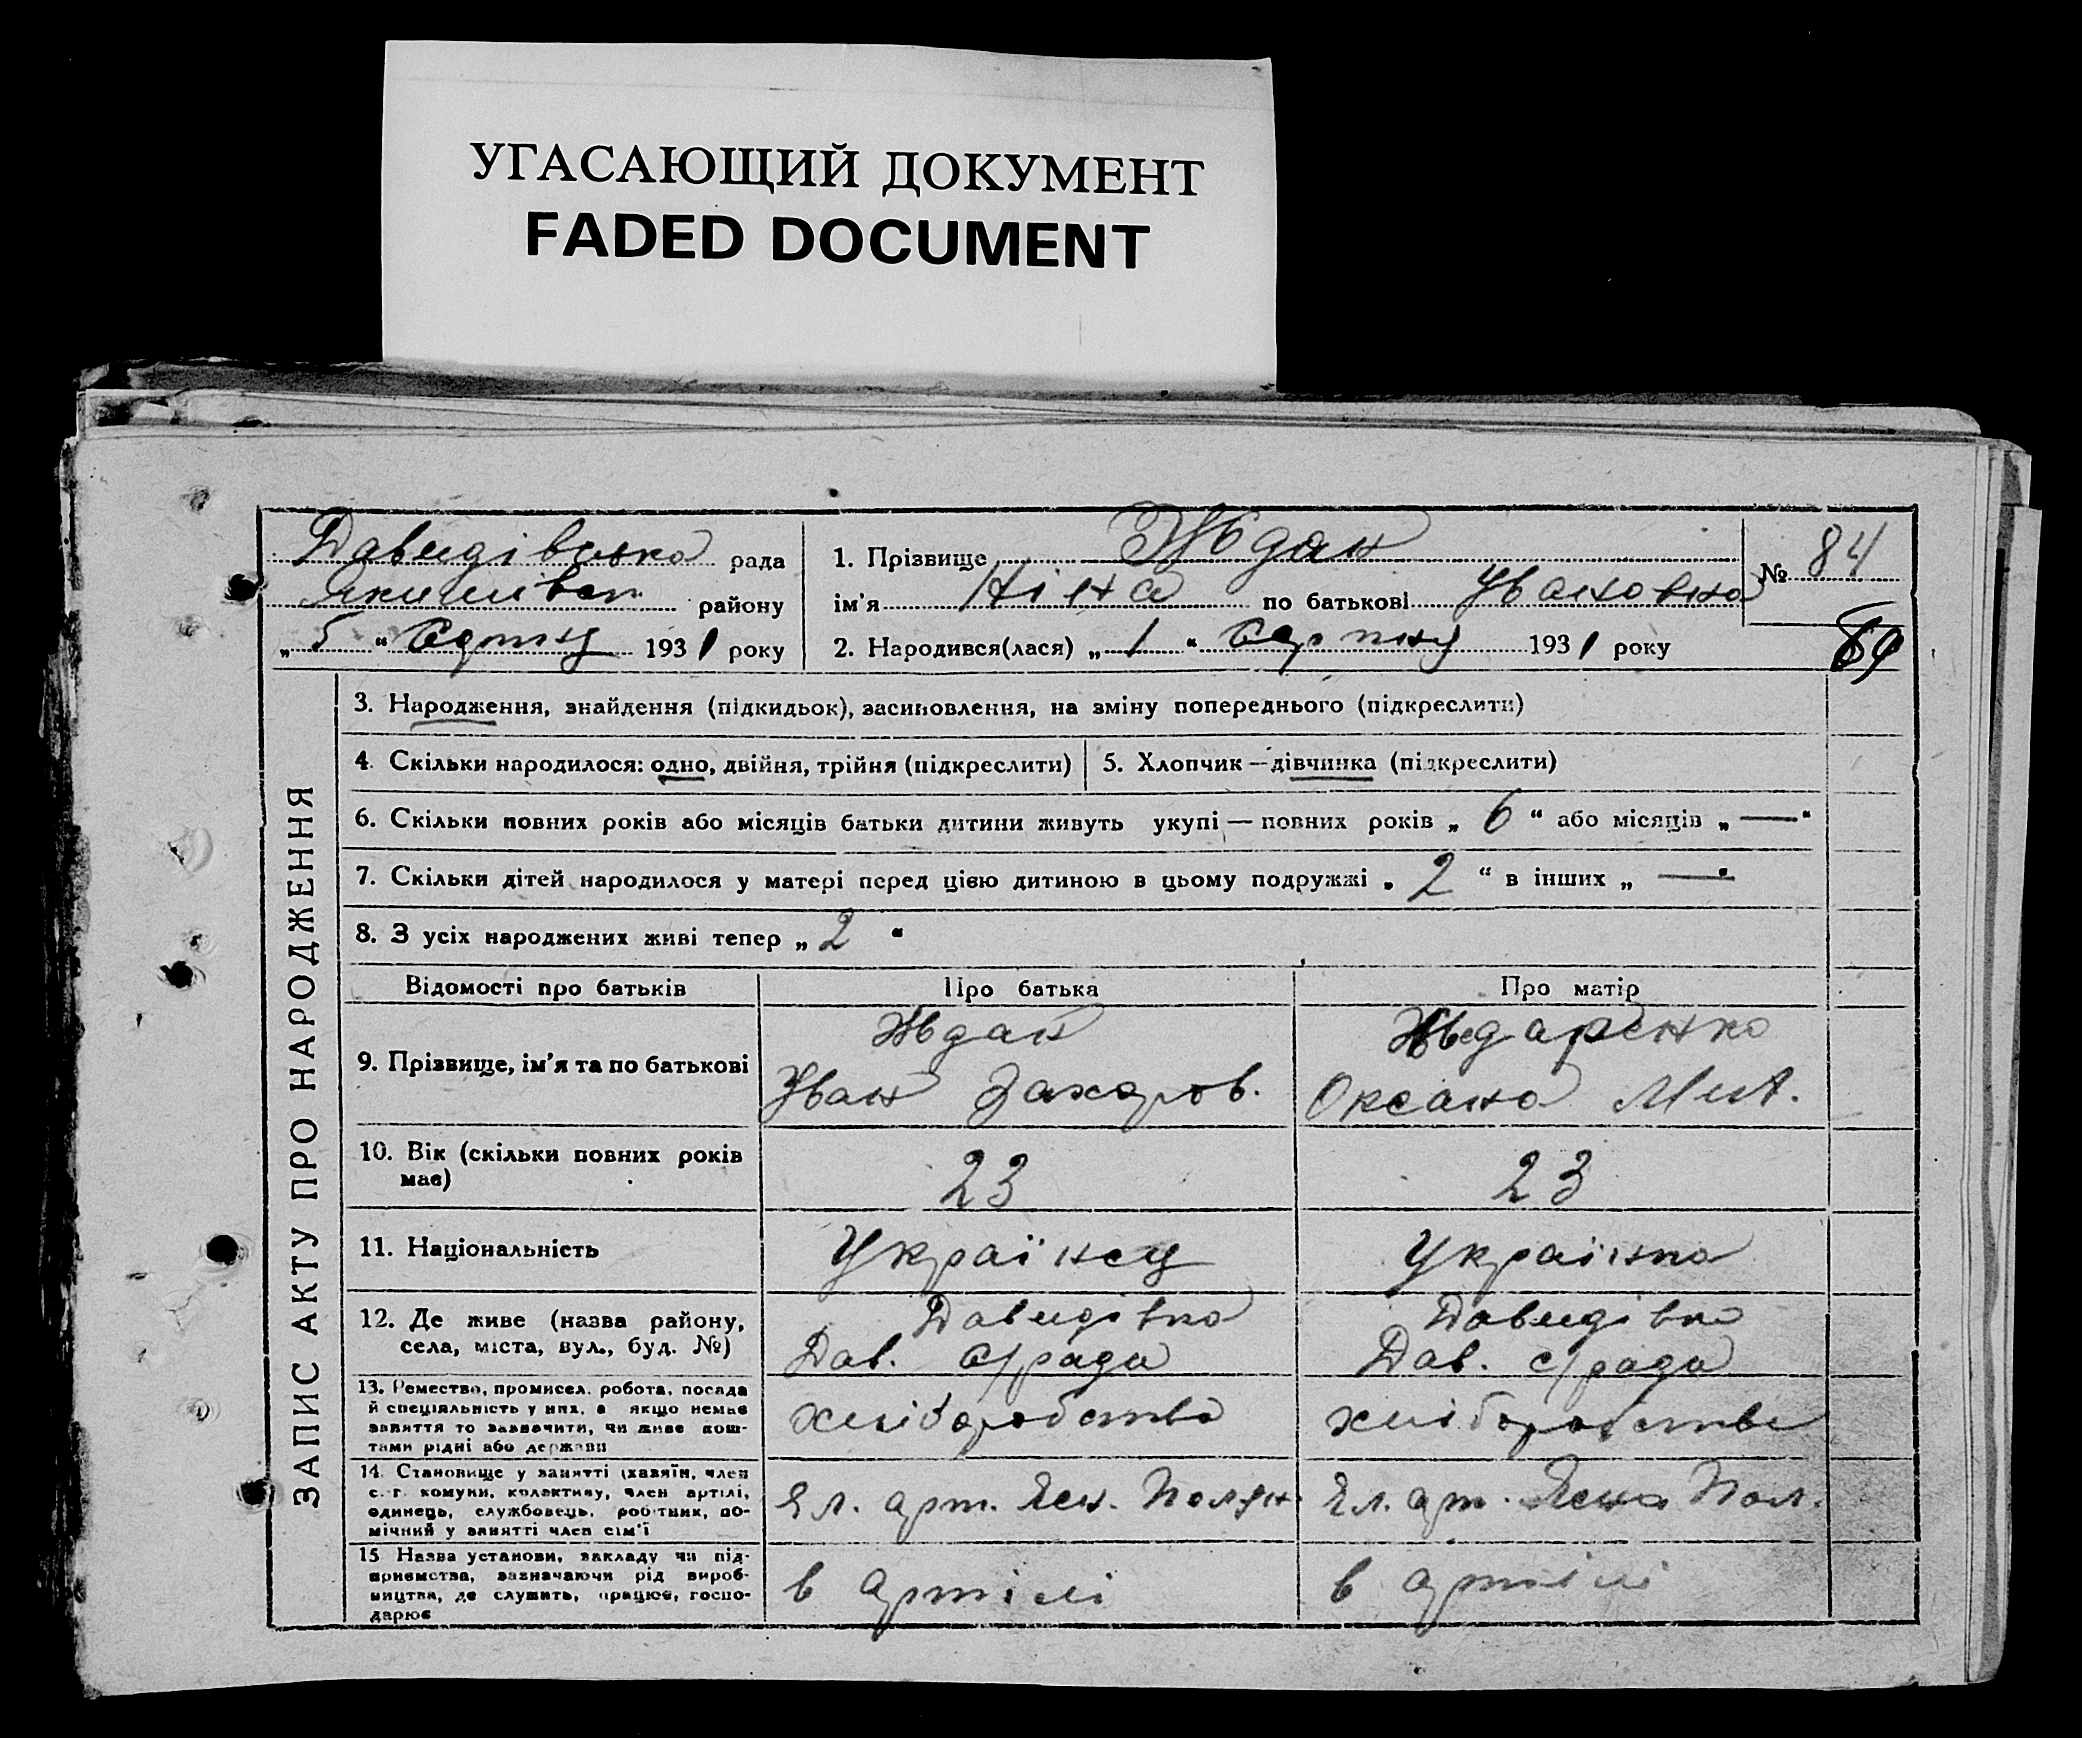 УГАСАЮЩИЙ ДОКУМЕНТ
FADED DOCUMENT
Давидівська рада
району
„ 5 “ Серпня 1931 року
1. Прізвище Ждан
ім'я Ніна по батькові Івановна
2. Народився(лася) „ 1 “ Серпня 1931 року
№ 84
ЗАПИС АКТУ ПРО НАРОДЖЕННЯ
3. Народження, знайдення (підкидьок), засиновлення, на зміну попереднього (підкреслити)
4. Скільки народилося: одно, двійня, трійня (підкреслити)
5. Хлопчик — дівчинка (підкреслити)
6. Скільки повних років або місяців батьки дитини живуть укупі — повних років „ 6 “ або місяців „ — “
7. Скільки дітей народилося у матері перед цією дитиною в цьому подружжі „ 2 “ в інших „ — “
8. З усіх народжених живі тепер „ 2 “
Відомості про батьків
Про батька
Про матір
9. Прізвище, ім'я та по батькові
Ждан
Іван Захаров.
Оксана Мит.
10. Вік (скільки повних років
має)
23
23
11. Національність
Українец
Українка
12. Де живе (назва району,
села, міста, вул., буд. №)
Давидівка
Дав. с/рада
Давидівка
Дав. с/рада
13. Ремество, промисел, робота, посада
й спеціяльність у них, а якщо немає
заняття то зазначити, чи живе кош-
тами рідні або держави
хліборобство
хліборобство
14. Становище у занятті (хазяїн, член
с.-г. комуни, колективу, член артілі,
одинець, службовець, робітник, по-
мічний у занятті член сім'ї
Чл. арт. Ясн. Полян.
Чл. арт. Ясна Пол.
15 Назва установи, закладу чи під-
приємства, зазначаючи рід вироб-
ництва, де служить, працює, госпо-
дарює
в артілі
в артілі